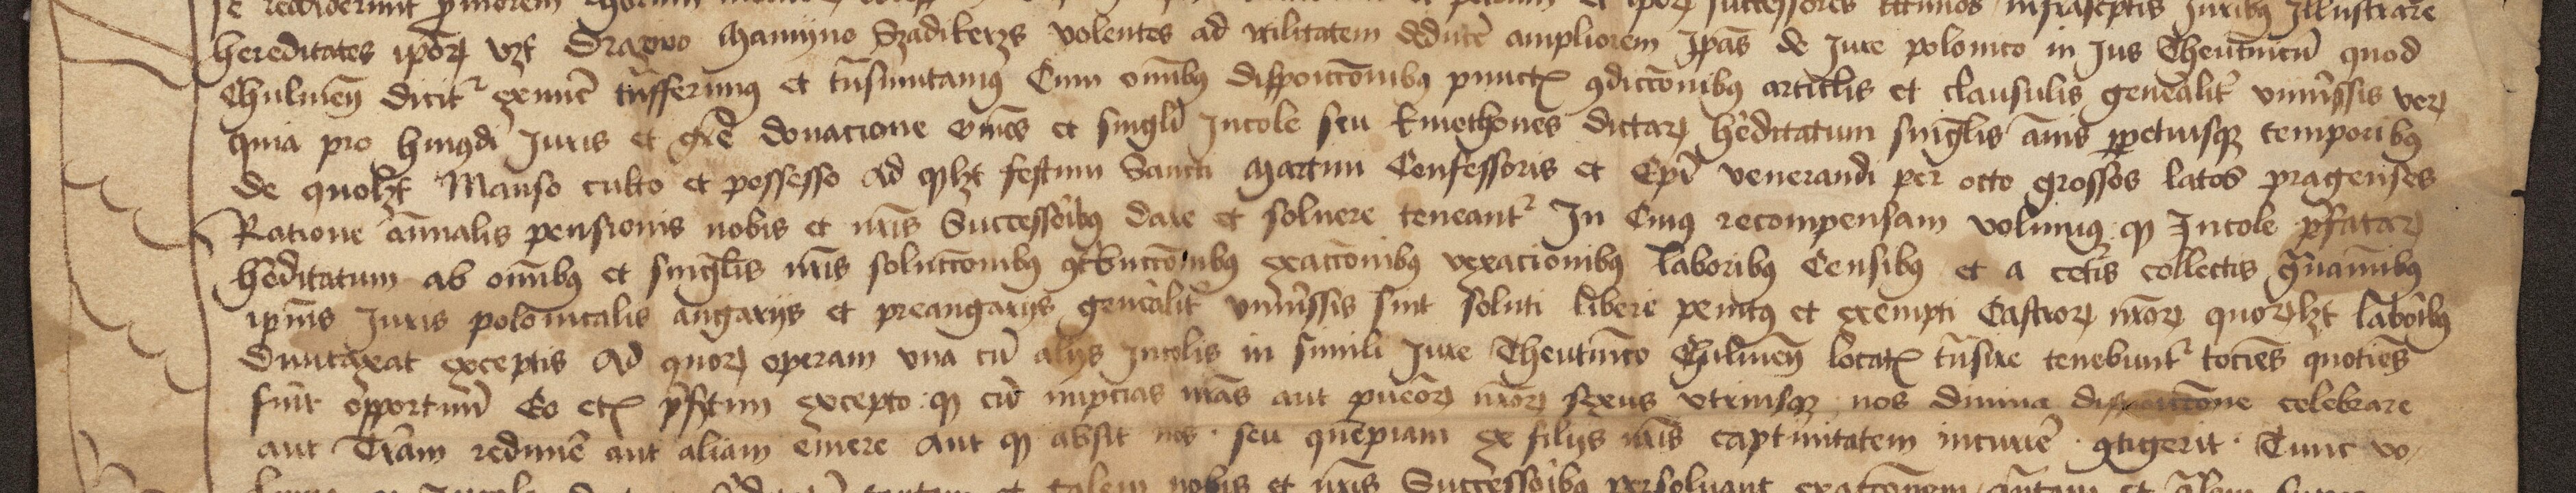 se reddiderunt successores legittimos infrascriptis Juribus Illustrare
hereditates ipsorum videlicet Dragewo Mamyno Szadikerzs volentes ad vtilitatem deducere ampliorem Ipas de Jure polonico in Jus Theutunicum quod
Chulmen dicitur eximere transferimus et transmutamus Cum omnibus disposicionibus punctis condicionibus articulis et clausulis generaliter vniuersis verum
quia pro huiusmodi Juris et gracie donacione omnes et singuli Incole seu kmethones dictarum hereditatum singulis annis perpetuisque temporibus
de quolibet Manso culto et possesso Ad quodlibet festum Sancti Martini Confessoris et Episcopi venerandi per octo grossos latos pragenses
Ratione annalis pensionis nobis et nostris Successoribus dare et soluere teneantur In Cuius recompensam volumus quod Incole prefatarum
hereditatum ab omnibus et singulis nostris solucionibus contribucionibus exaccionibus vexacionibus laboribus Censibus et a ceteris collectis grauaminibus
ipsius Juris polonicalis angarijs et preangarijs generaliter vniuersis sint soluti liberi penitus et exempti Castrorum nostrorum quorumlibet laboribus
duntaxat exceptis Ad quorum operam vna cum alijs Incolis in simili Jure Theutunico Chulmen locatis transire tenebuntur tociens quociens
fuerit opportunum Eo etiam presertim excepto quod cum nupcias nostras aut puerorum nostrorum sexus vtriusque nos diuina disposicione celebrare
aut Terram redimere aut aliam emere Aut quod absit nos seu quempiam ex filijs nostris captiuitatem incurrere contigerit Tunc vo-
talem nobis et nostris Successoribus persoluant exaccionem